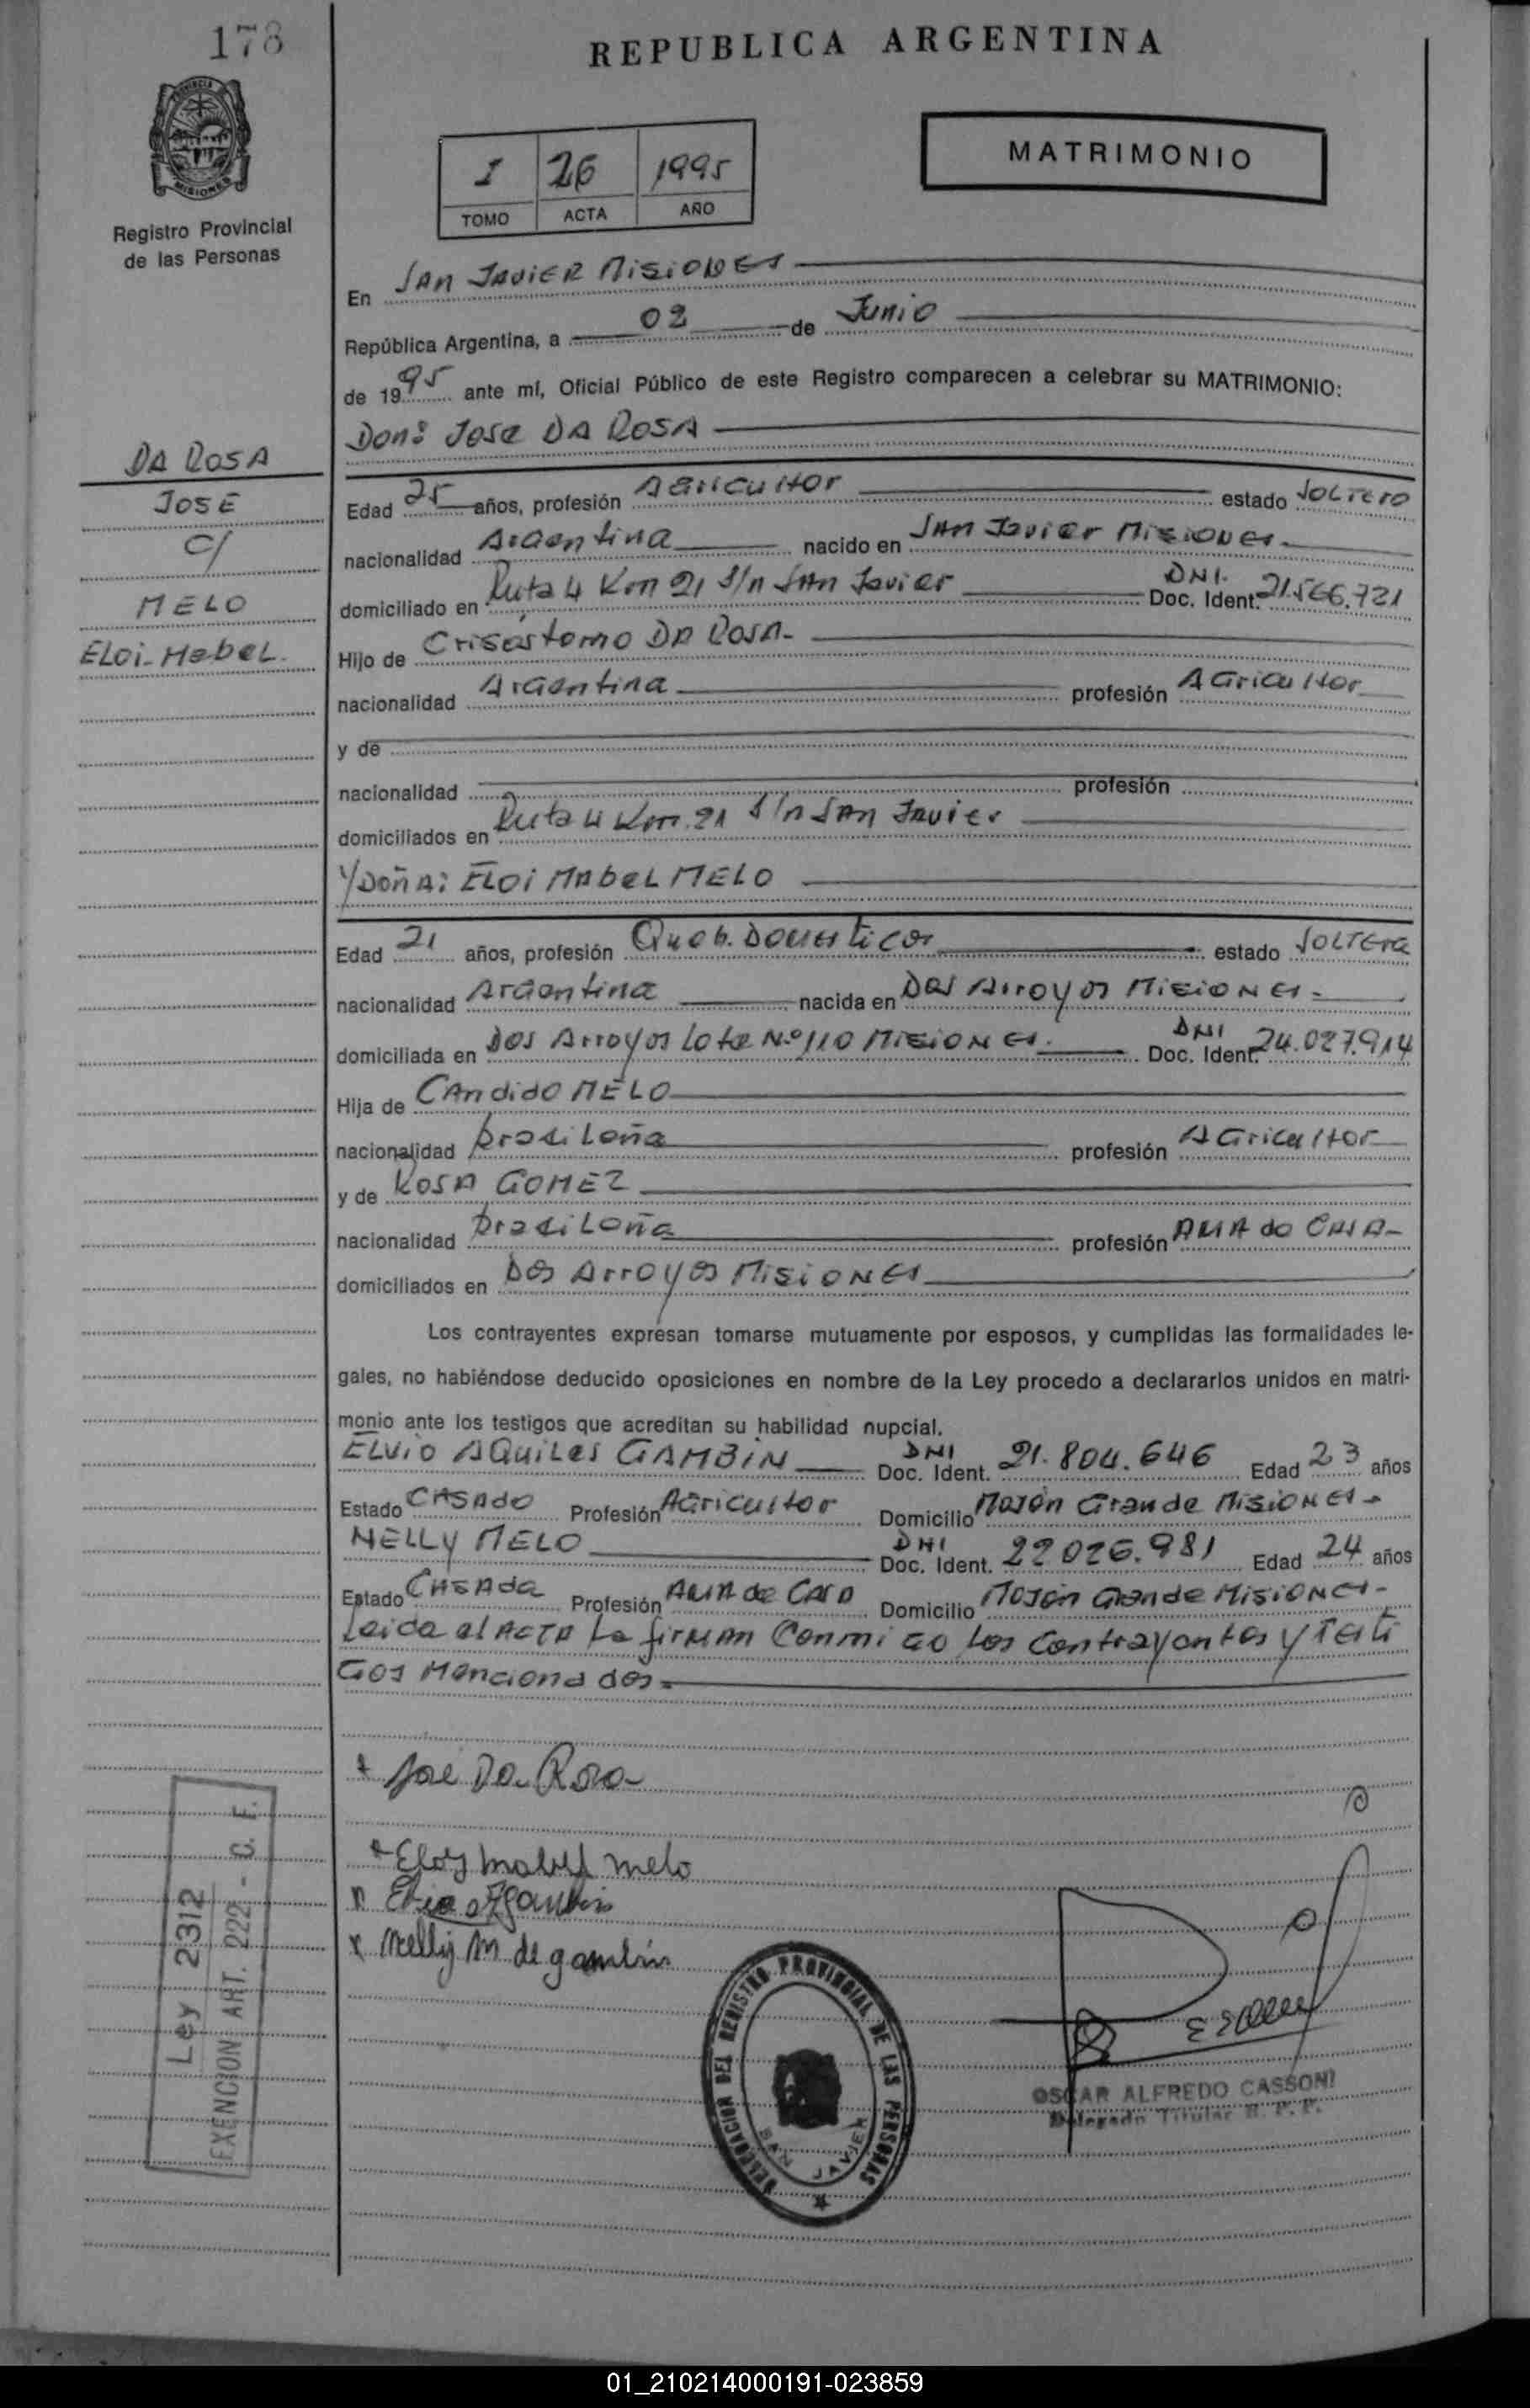 178
REPUBLICA ARGENTINA
MISIONES
Registro Provincial
de las Personas
I 26 1995
TOMO ACTA AÑO
MATRIMONIO
En SAN JAVIER MISIONES
República Argentina, a 02 de Junio
de 1995 ante mí, Oficial Público de este Registro comparecen a celebrar su MATRIMONIO:
Don: Jose DA ROSA
DA ROSA
JOSE
C/
MELO
ELOi-MabeL.
Edad 25 años, profesión Agricultor estado SOLTero
nacionalidad Argentina nacido en SAN Javier MISIONES.
domiciliado en Ruta 4 Km 21 S/n SAN Javier DNI. Doc. Ident. 21.566.721
Hijo de Crisóstomo DA ROSA-
nacionalidad Argentina profesión AGricultor
y de
nacionalidad profesión
domiciliados en Ruta 4 Km. 21 S/n SAN Javier
Y DOñA: ELOi MAbeL MELO
Edad 21 años, profesión Queh. Domesticos estado SOLTera
nacionalidad Argentina nacida en Dos Arroyos MISIONES-
domiciliada en Dos Arroyos Lote Nº 110 MISIONES. DNI Doc. Ident. 24.027.914
Hija de CAndido MELO
nacionalidad brasiLeña profesión AGricultor
y de ROSA GOMEZ
nacionalidad brasiLeña profesión AMA de CASA-
domiciliados en Dos Arroyos MISIONES
Los contrayentes expresan tomarse mutuamente por esposos, y cumplidas las formalidades le-
gales, no habiéndose deducido oposiciones en nombre de la Ley procedo a declararlos unidos en matri-
monio ante los testigos que acreditan su habilidad nupcial.
ELViO AQuiLes GAMBiN DNI Doc. Ident. 21.804.646 Edad 23 años
Estado CASAdo Profesión AGricultor Domicilio Mojón Grande MISIONES-
NELLY MELO DNI Doc. Ident. 22026.981 Edad 24 años
Estado CASAda Profesión AMA de CASA Domicilio Mojón Grande MISIONES-
Leida el ACTA La firMAN Conmigo Los Contrayentes y Testi
Gos Mencionados-
+ José Da Rosa
+ Eloy Mabel melo
x Nelly M de gambin
Ley 2312
EXENCION ART. 222 - C. F.
DELEGACION DEL REGISTRO PROVINCIAL DE LAS PERSONAS
SAN JAVIER
OSCAR ALFREDO CASSONI
Delegado Titular R. P. P.
01_210214000191-023859